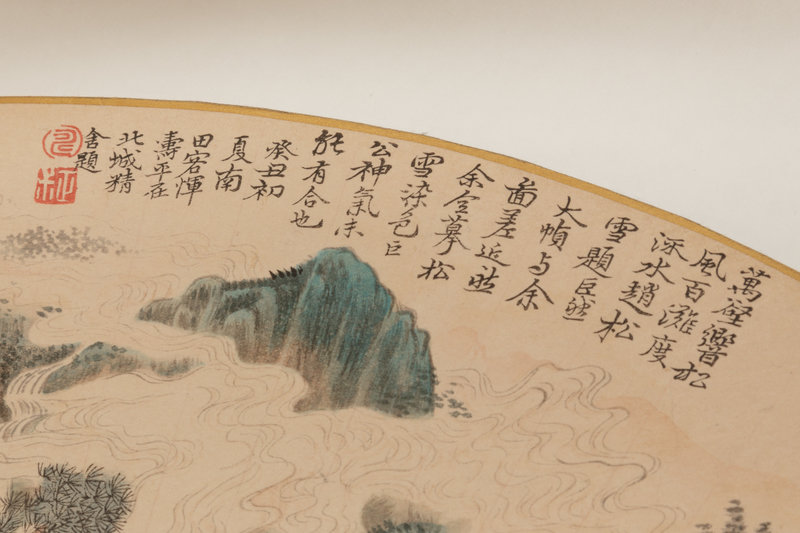 萬壑響松
風百灘度
流水趙松
雪題巨然
大幀與余
啚差近然
余全摹松
雪染色巨
公神氣未
能有合也
癸丑初
夏南
田客惲
壽平在
北城精
舍題